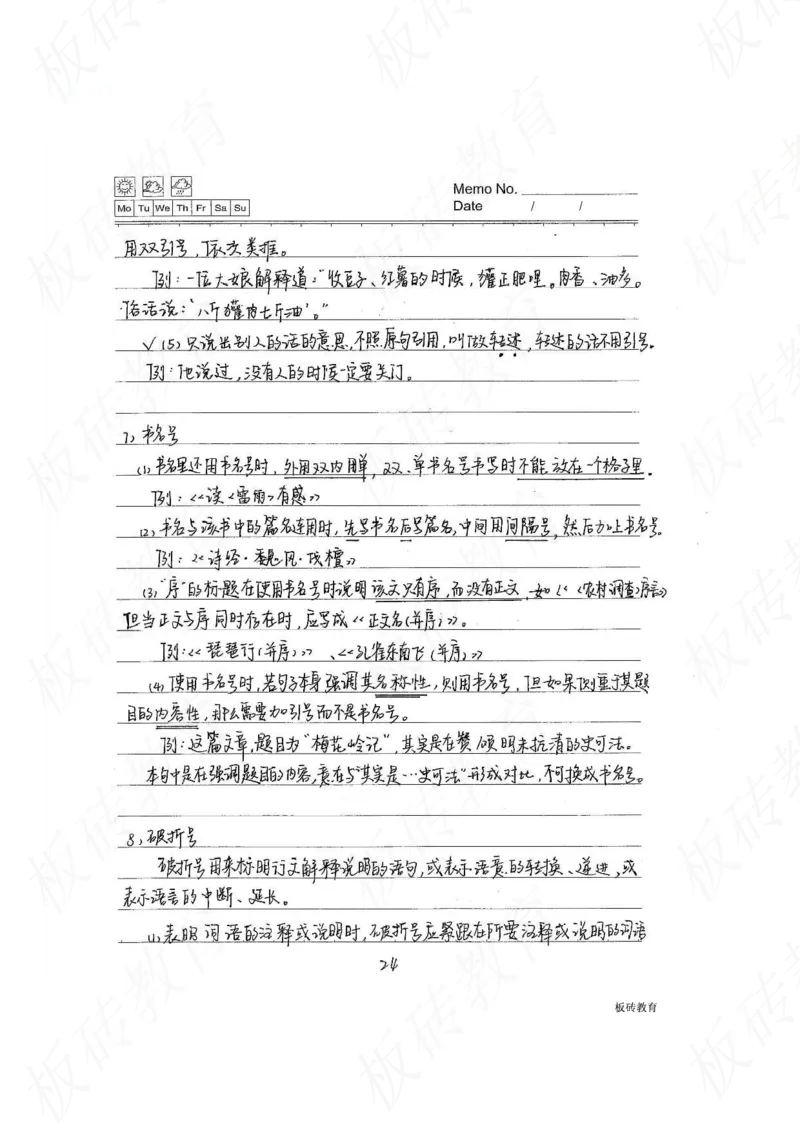 Memo No.
Mo Tu We Th Fr Sa Su
Date / /
用双引号，依次类推。
例：一位大娘解释道："收豆子、红薯的时候，獾正肥哩。肉香、油多。
俗话说：'八斤獾肉七斤油'。"
√ (5) 只说出别人的话的意思，不照原句引用，叫做转述，转述的话不用引号。
例：他说过，没有人的时候一定要关门。
7、书名号
(1) 书名里还用书名号时，外用双内用单，双、单书名号书写时不能放在一个格子里。
例：《读〈雷雨〉有感》
(2) 书名与该书中的篇名连用时，先写书名后写篇名，中间用间隔号，然后加上书名号。
例：《诗经·魏风·伐檀》
(3) "序"的标题在使用书名号时说明该文只有序，而没有正文，如《〈农村调查〉序言》
但当正文与序同时存在时，应写成《正文名（并序）》。
例：《琵琶行（并序）》、《孔雀东南飞（并序）》
(4) 使用书名号时，若句子本身强调其名称性，则用书名号，但如果侧重于其题
目的内容性，那么需要加引号而不是书名号。
例：这篇文章，题目为"梅花岭记"，其实是在赞颂明末抗清的史可法。
本句中是在强调题目的内容，意在与"其实是…史可法"形成对比，不可换成书名号。
8、破折号
破折号用来标明行文解释说明的语句，或表示语意的转换、递进，或
表示语言的中断、延长。
(1) 表明词语的注释或说明时，破折号应紧跟在所要注释或说明的词语
24
板砖教育